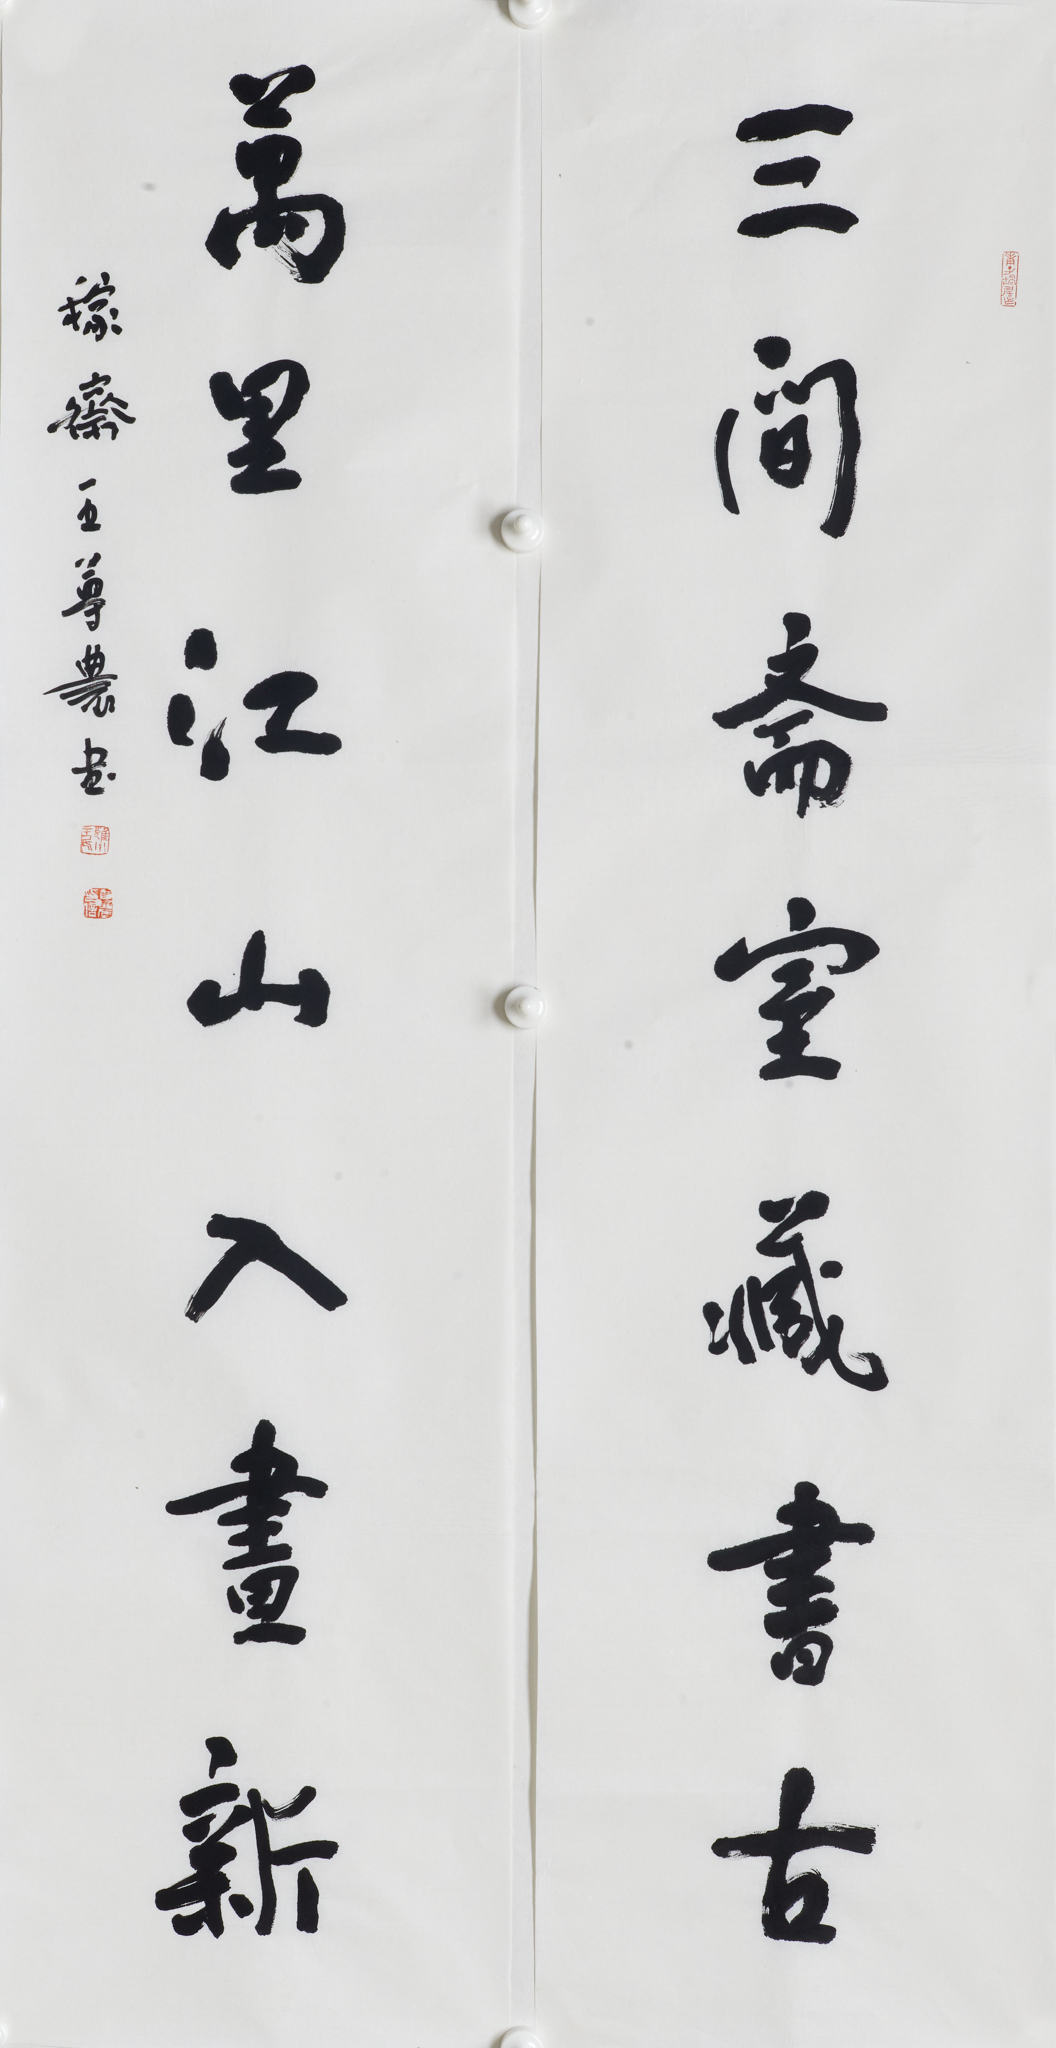 三間斋室藏書古
萬里江山入畫新
稼齋王尊農书